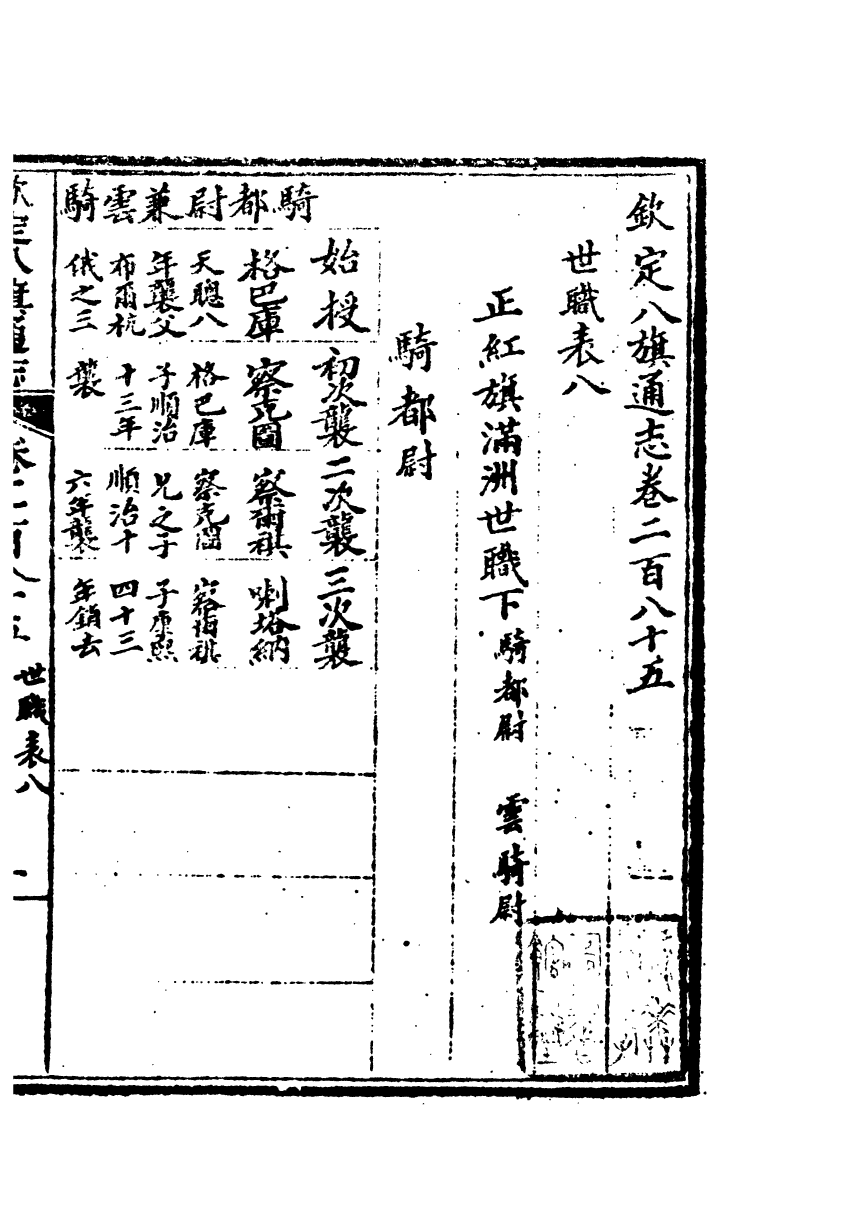 欽定八旗通志卷二百八十五
世職表八
正紅旗滿洲世職下 騎都尉 雲騎尉
騎都尉
始授 初次襲 二次襲 三次襲
騎都尉兼雲騎
格巴庫
天聰八
年襲父
布爾杭
俄之三
察克圖
格巴庫
子順治
十三年
襲
察爾祺
察克圖
兄之子
順治十
六年襲
喇塔納
子康熙
四十三
年銷去
世職表八